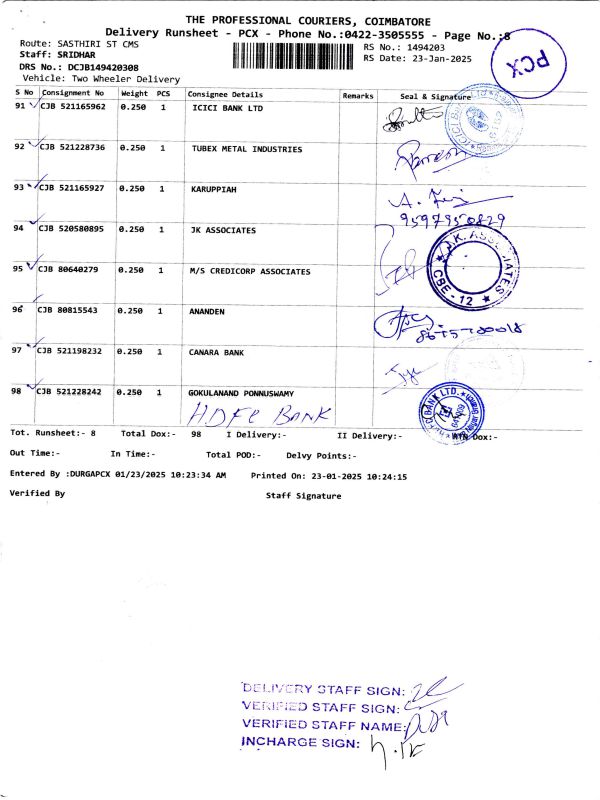 THE PROFESSIONAL COURIERS, COIMBATORE
Delivery Runsheet - PCX - Phone No.:0422-3505555 - Page No.:8
Route: SASTHIRI ST CMS
RS No.: 1494203
Staff: SRIDHAR
RS Date: 23-Jan-2025
DRS No.: DCJB149420308
PCX
Vehicle: Two Wheeler Delivery
S No Consignment No Weight PCS Consignee Details Remarks Seal & Signature
91 CJB 521165962 0.250 1 ICICI BANK LTD
92 CJB 521228736 0.250 1 TUBEX METAL INDUSTRIES
93 CJB 521165927 0.250 1 KARUPPIAH
9597950829
94 CJB 520580895 0.250 1 JK ASSOCIATES
J.K. ASSOCIATES
CBE - 12
95 CJB 80640279 0.250 1 M/S CREDICORP ASSOCIATES
96 CJB 80815543 0.250 1 ANANDEN
97 CJB 521198232 0.250 1 CANARA BANK
98 CJB 521228242 0.250 1 GOKULANAND PONNUSWAMY
HDFC BANK
Tot. Runsheet:- 8 Total Dox:- 98 I Delivery:- II Delivery:- NTN Dox:-
Out Time:- In Time:- Total POD:- Delvy Points:-
Entered By :DURGAPCX 01/23/2025 10:23:34 AM Printed On: 23-01-2025 10:24:15
Verified By Staff Signature
DELIVERY STAFF SIGN:
VERIFIED STAFF SIGN:
VERIFIED STAFF NAME:
INCHARGE SIGN: